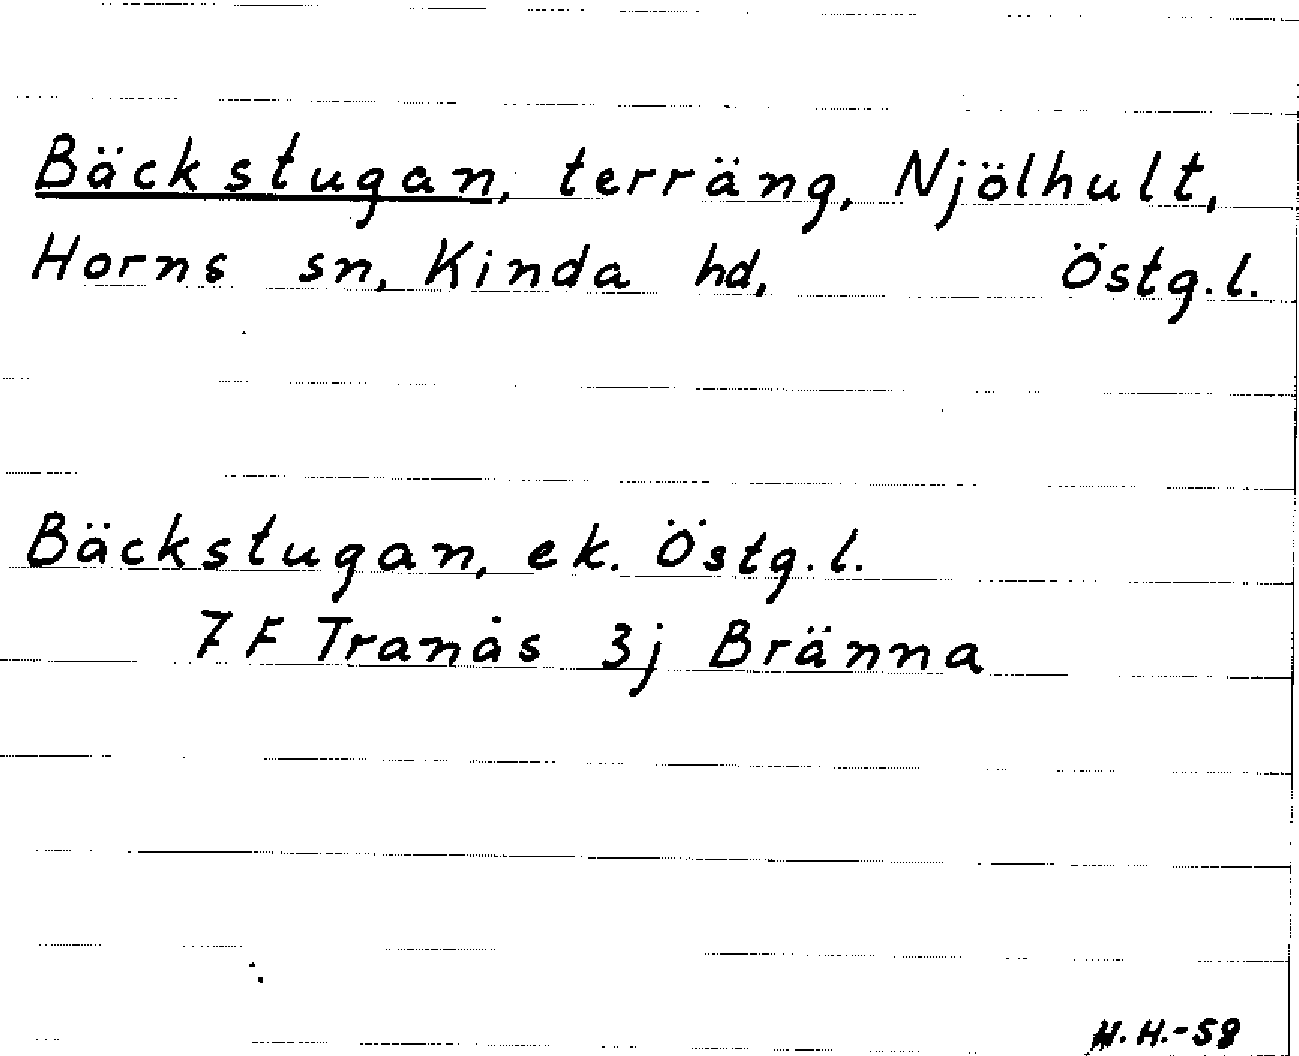 Bäckstugan, terräng, Njölhult,
Horns sn, Kinda hd, Östg.l.
Bäckstugan, ek. Östg.l.
7 F Tranås 3j Bränna
H.H.-58